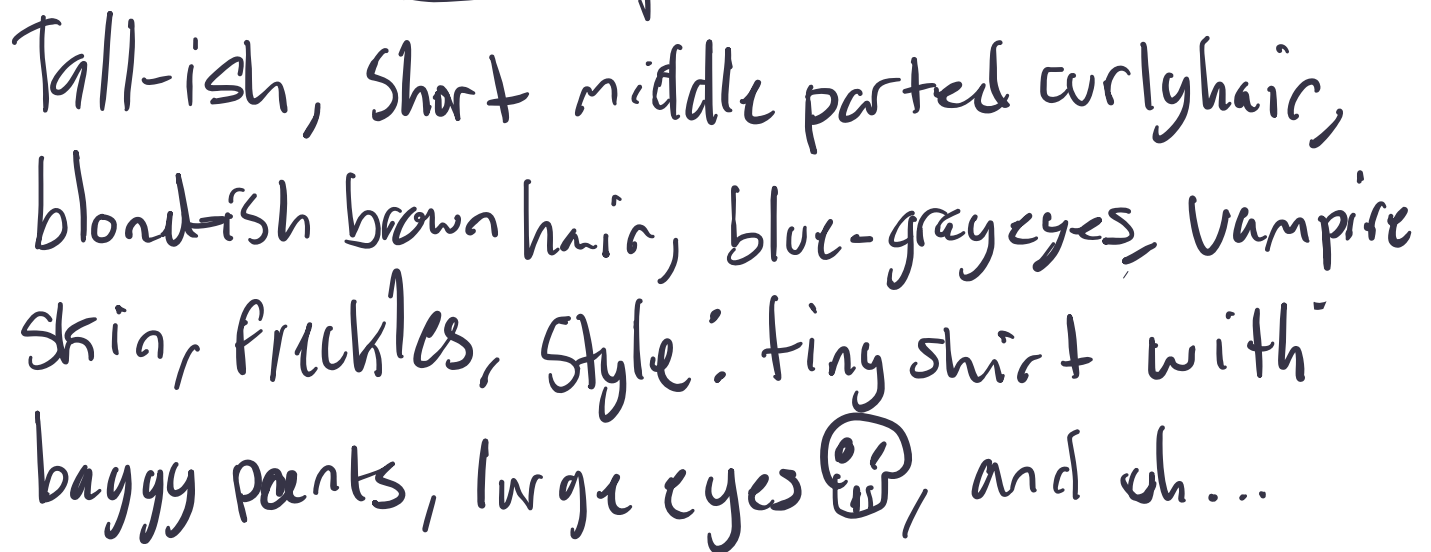 Tall-ish, Short middle parted curlyhair,
blond-ish brown hair, blue-gray eyes, vampire
skin, freckles, Style: tiny shirt with
baggy pants, large eyes 💀, and uh...